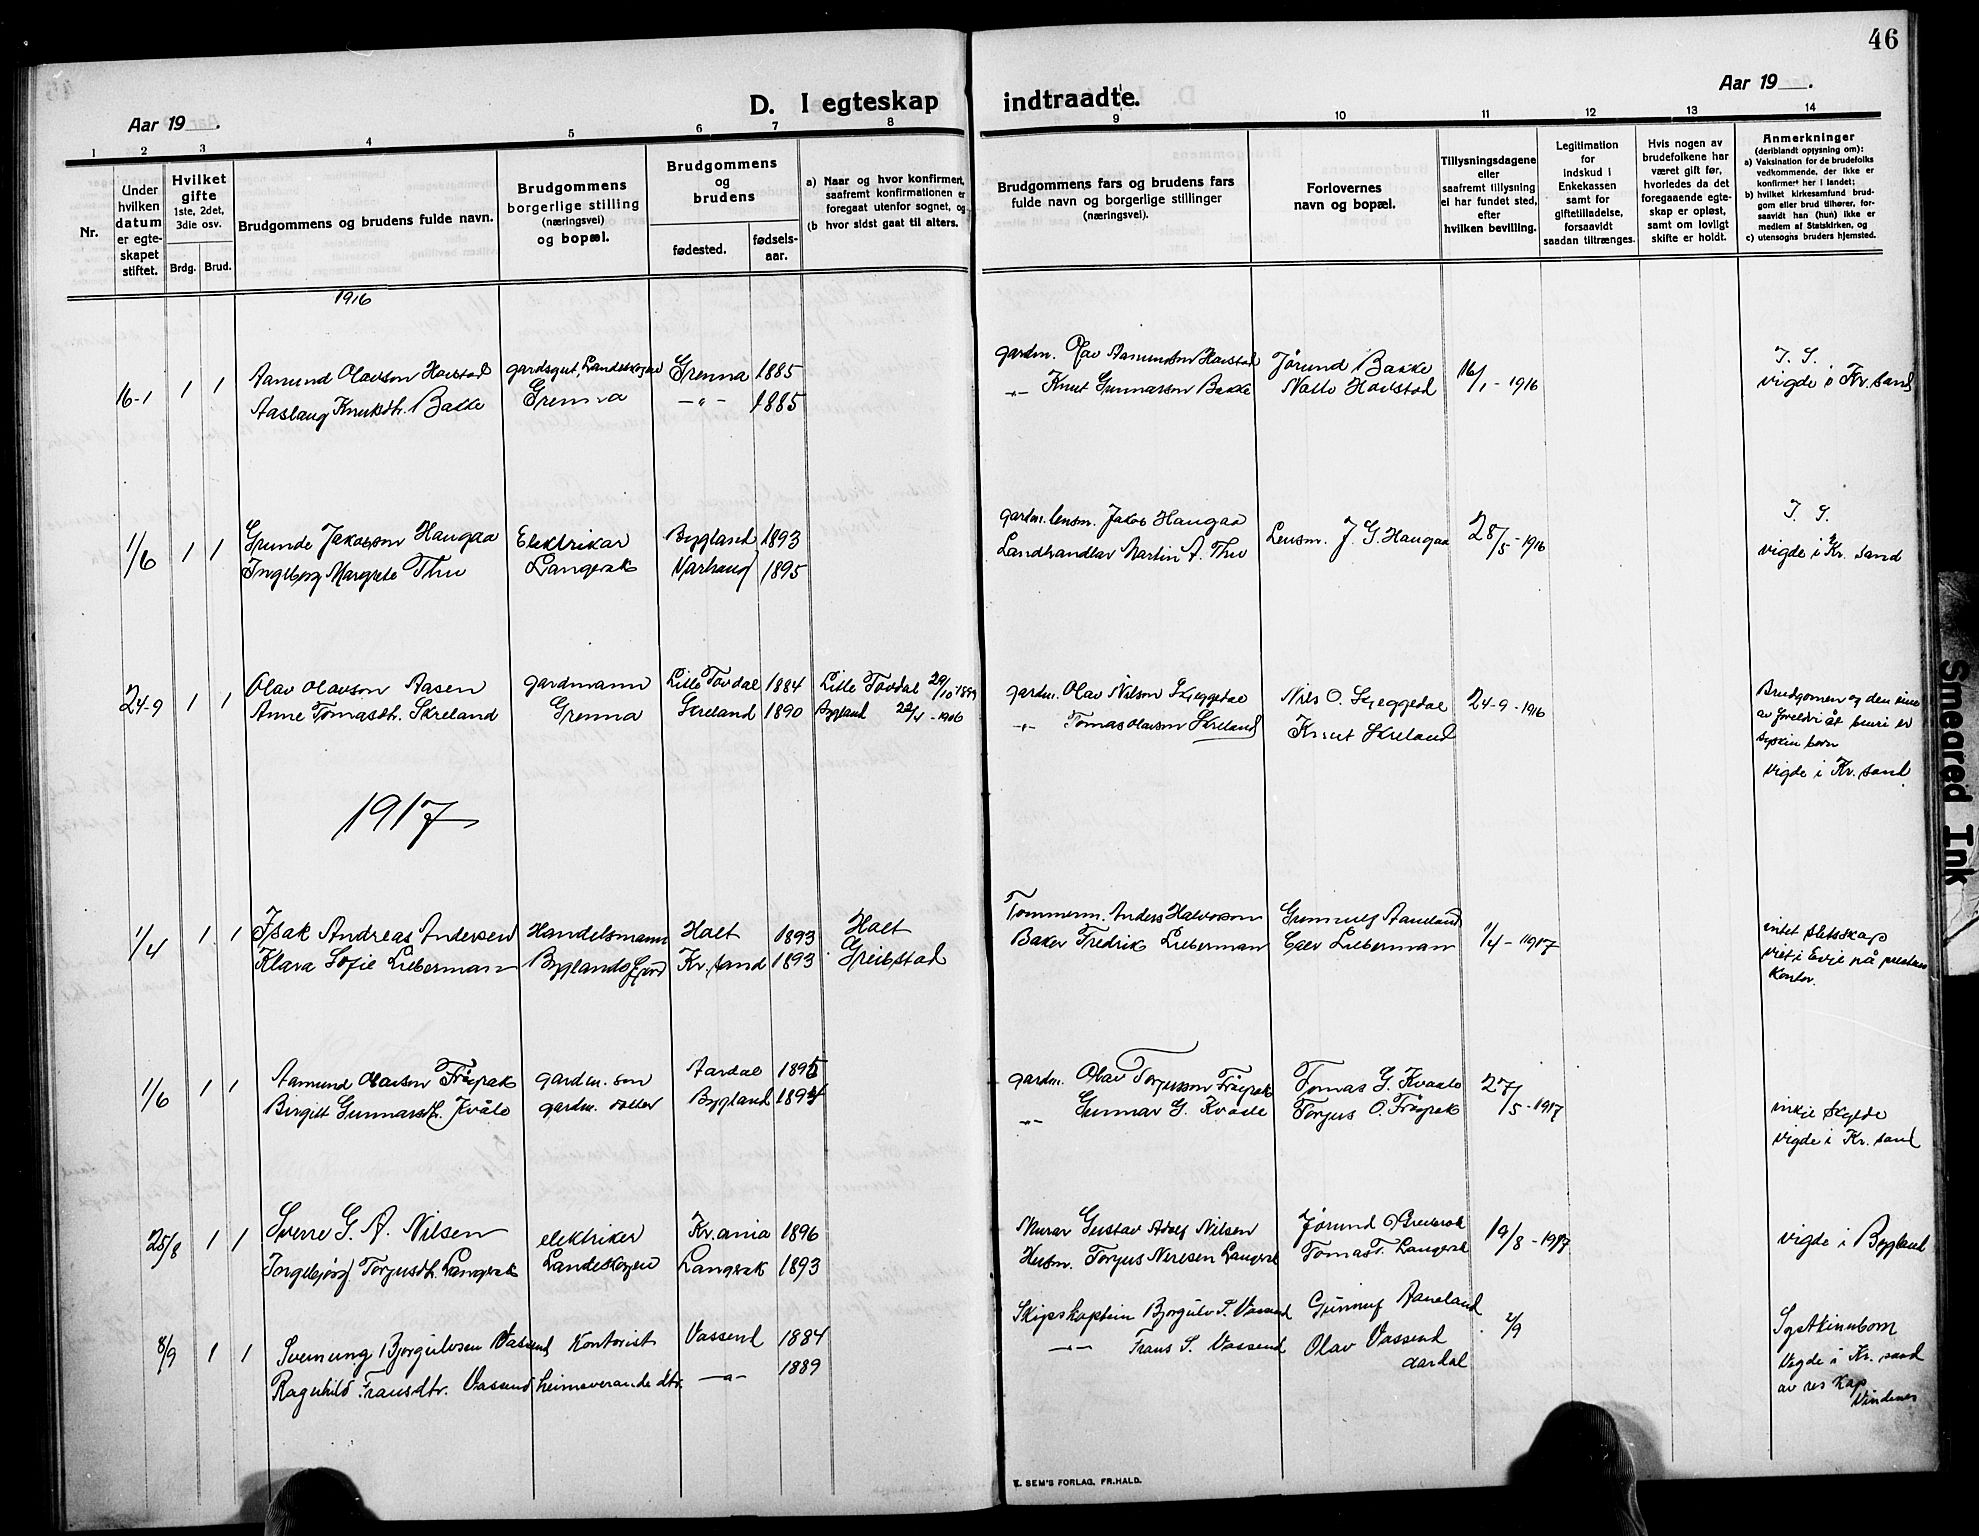 46
Aar 19 .
D. I egteskap
indtraadte.
Aar 19 .
1 2 3 4 5 6 7 8 9 10 11 12 13 14
Nr.
Under hvilken datum er egte- skapet stiftet.
Hvilket gifte 1ste, 2det, 3die osv.
Brdg. Brud.
Brudgommens og brudens fulde navn.
Brudgommens borgerlige stilling (næringsvei) og bopæl.
Brudgommens og brudens
fødested. fødsels- aar.
a) Naar og hvor konfirmert, saafremt konfirmationen er foregaat utenfor sognet, og
(b hvor sidst gaat til alters.
Brudgommens fars og brudens fars fulde navn og borgerlige stillinger (næringsvei).
Forlovernes navn og bopæl.
Tillysningsdagene eller saafremt tillysning ei har fundet sted, efter hvilken bevilling.
Legitimation for indskud i Enkekassen samt for giftetilladelse, forsaavidt saadan tiltrænges.
Hvis nogen av brudefolkene har været gift før, hvorledes da det foregaaende egte- skap er opløst, samt om lovligt skifte er holdt.
Anmerkninger (deriblandt opysning om):
a) Vaksination for de brudefolks vedkommende, der ikke er konfirmert her i landet;
b) hvilket kirkesamfund brud- gom eller brud tilhører, for- saavidt han (hun) ikke er medlem af Statskirken, og
c) utensogns bruders hjemsted.
1916
16-1 1 1 Aamund Olavson Havstad gardsgut, Landeskogen Grenna 1885 gardm. Olav Aamundson Havstad Jørund Bakke 16/1 - 1916 I. S.
Aaslaug Knutsdt. Bakke Grenna -"- 1885 -"- Knut Gunnarson Bakke Havstad vigde i Kr. sand
1/6 1 1 Grunde Jakobson Haugaa Elektrikar Bygland 1893 gardm. lensm. Jakob Haugaa Lensm. J. G. Haugaa 28/5 - 1916 I. S.
Ingeborg Margrete Thu Langerak Varhaug 1895 Landhandlar Martin A. Thu vigde i Kr. sand
24-9 1 1 Olav Olavson Aasen gardmann Litle Tovdal 1884 Litle Tovdal 29/10 1899 gardm. Olav Nilson Skjeggedal Nils O. Skjeggedal 24-9-1916 Brudgomen og den eine
Anne Tomasdt. Skreland Grenna Skreland 1890 Bygland 22/4 - 1906 -"- Tomas Olavson Skreland Knut Skreland av foreldri åt bruri er
syskin born
vigde i Kr. sand
1917
1/4 1 1 Isak Andreas Andersen Handelsmann Holt 1893 Holt Tømmerm. Anders Halvorson Gunnulf Aaneland 1/4 - 1917 intet sletskap
Klara Sofie Lieberman Byglandsfjord Kr. sand 1893 Greibstad Baker Fredrik Lieberman Lieberman viet i Evje på prestens
kontor.
1/6 1 1 Aamund Olavson Frøyrak gardm. son Aardal 1895 gardm. Olav Torjusson Frøyrak Tomas G. Kvaale 27/5 - 1917
Birgitt Gunnarsdt. Kvåle gardm. dotter Bygland 1894 -"- Gunnar G. Kvaale Torjus O. Frøyrak inkje skylde
vigde i Kr. sand
25/8 1 1 Sverre G. A. Nilsen elektriker Kr.ania 1896 Murar Gustav Adolf Nilsen Jørund 19/8 - 1917 vigde i Bygland
Torgjusdt. Langerak Landeskogen Langerak 1893 Husm. Torjus Neresen Langerak Tomas T. Langerak
8/9 1 1 Sveinung Bjorgulvsen Vassend Kontorist Vassend 1884 Skipskaptein Bjorgulv S. Vassend Gunnulf Aaneland 2/9 Systkinnborn
Ragnhild Fransdtr. Vassend heimeverande dtr. -"- 1889 -"- Frans S. Vassend Olav Vassend Vigde i Kr. sand
aardal av res kap
Vindenes
E. SEM'S FORLAG, FR.HALD.
Smeared Ink